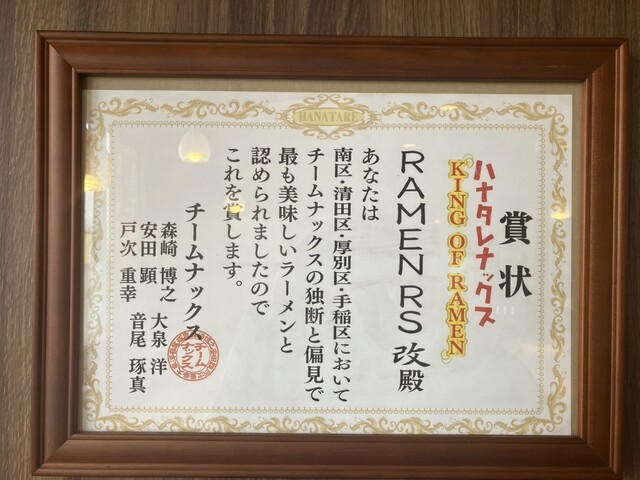 HANATARE
賞状
ハナタレナックス
KING OF RAMEN
RAMEN RS 改 殿
あなたは
南区・清田区・厚別区・手稲区において
チームナックスの独断と偏見で
最も美味しいラーメンと
認められましたので
これを賞します。
チームナックス
森崎 博之 大泉 洋
安田 顕 音尾 琢真
戸次 重幸
チーム
ナックス